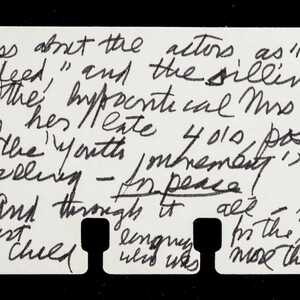 ss about the actors as "
feed," and the sillin
the hypocritical Mrs
her late 40's, pos
the "youth movement"
dling — for peace
and through it all —
rt for the
child who was more th